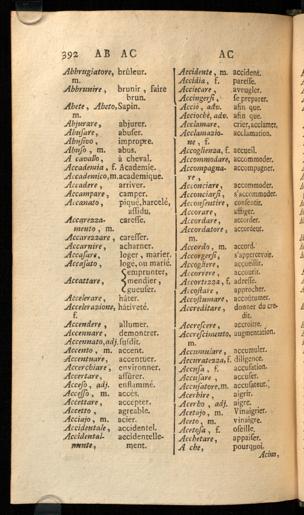 392 AB AC
AC
Abbrugiatore, brûleur.
m.
Abbrunire, brunir, faire
brun.
Abete, Abeto, Sapin.
m.
Abjurare, abjurer.
Abusare, abuser.
Abusivo, impropre.
Abuso, m. abus.
A cavallo, à cheval.
Accademia, f. Académie.
Accademico, m. academique.
Accadere, arriver.
Accampare, camper.
Accanato, piqué, harcelé,
assidu.
Accarezza- caresse.
mento, m.
Accarezzare, caresser.
Accarnire, acharner.
Accasare, loger, marier.
Accasato, logé, ou marié.
emprunter,
Accattare, mendier,
gueuser.
Accelerare, hâter.
Accelerazione, hâtiveté.
f.
Accendere, allumer.
Accennare, demontrer.
Accennato, adj. susdit.
Accento, m. accent.
Accentuare, accentuer.
Accerchiare, environner.
Accertare, assûrer.
Acceso, adj. enflammé.
Accesso, m. accès.
Accettare, accepter.
Accetto, agreable.
Acciajo, m. acier.
Accidentale, accidentel.
Accidental- accidentelle-
mente, ment.
Accidente, m. accident.
Accidia, f. paresse.
Acciecare, aveugler.
Accingersi, se preparer.
Acciò, adv. afin que.
Acciochè, adv. afin que.
Acclamare, crier, acclamer.
Acclamazio- acclamation.
ne, f.
Accoglienza, f. accueil.
Accommodare, accommoder.
Accompagna- accompagner.
re,
Acconciare, accommoder.
Acconciarsi, s'accommoder.
Acconsentire, consentir.
Accorare, affliger.
Accordare, accorder.
Accordatore, accordeur.
m.
Accordo, m. accord.
Accorgersi, s'appercevoir.
Accogliere, accueillir.
Accorrere, accourir.
Accortezza, f. adresse.
Accostare, approcher.
Accostumare, accoûtumer.
Accreditare, donner du cre-
dit.
Accrescere, accroitre.
Accrescimento, augmentation.
m.
Accumulare, accumuler.
Accuratezza, f. diligence.
Accusa, f. accusation.
Accusare, accuser.
Accusatore, m. accusateur.
Acerbire, aigrir.
Acerbo, adj. aigre.
Acetajo, m. Vinaigrier.
Aceto, m. vinaigre.
Acetosa, f. oseille.
Acchetare, appaiser.
A che, pourquoi.